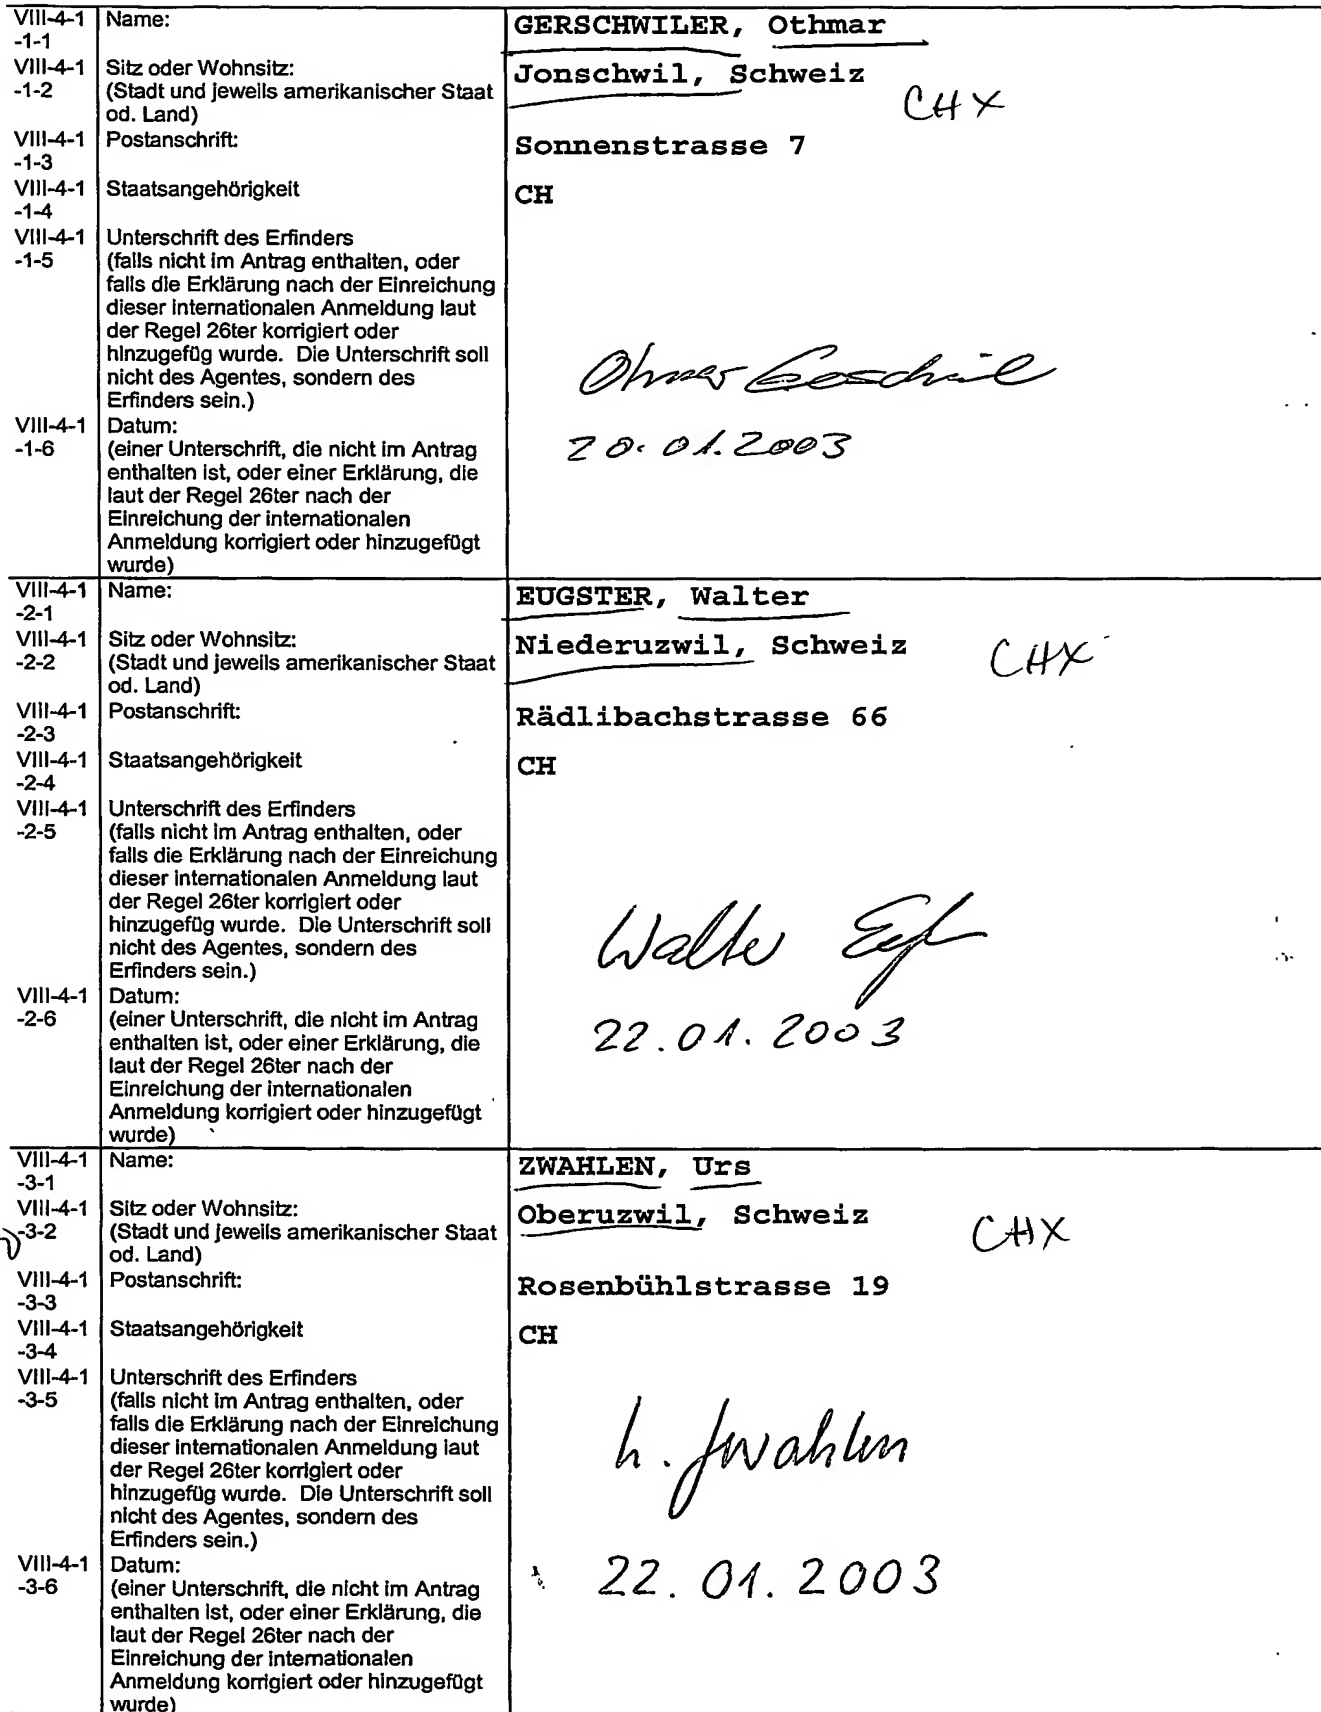 VIII-4-1
-1-1
Name:
GERSCHWILER, Othmar
VIII-4-1
-1-2
Sitz oder Wohnsitz:
(Stadt und jeweils amerikanischer Staat
od. Land)
Jonschwil, Schweiz
CHX
VIII-4-1
-1-3
Postanschrift:
Sonnenstrasse 7
VIII-4-1
-1-4
Staatsangehörigkeit
CH
VIII-4-1
-1-5
Unterschrift des Erfinders
(falls nicht im Antrag enthalten, oder
falls die Erklärung nach der Einreichung
dieser internationalen Anmeldung laut
der Regel 26ter korrigiert oder
hinzugefüg wurde. Die Unterschrift soll
nicht des Agentes, sondern des
Erfinders sein.)
VIII-4-1
-1-6
Datum:
(einer Unterschrift, die nicht im Antrag
enthalten ist, oder einer Erklärung, die
laut der Regel 26ter nach der
Einreichung der internationalen
Anmeldung korrigiert oder hinzugefügt
wurde)
20.01.2003
VIII-4-1
-2-1
Name:
EUGSTER, Walter
VIII-4-1
-2-2
Sitz oder Wohnsitz:
(Stadt und jeweils amerikanischer Staat
od. Land)
Niederuzwil, Schweiz
CHX
VIII-4-1
-2-3
Postanschrift:
Rädlibachstrasse 66
VIII-4-1
-2-4
Staatsangehörigkeit
CH
VIII-4-1
-2-5
Unterschrift des Erfinders
(falls nicht im Antrag enthalten, oder
falls die Erklärung nach der Einreichung
dieser internationalen Anmeldung laut
der Regel 26ter korrigiert oder
hinzugefüg wurde. Die Unterschrift soll
nicht des Agentes, sondern des
Erfinders sein.)
Walter
VIII-4-1
-2-6
Datum:
(einer Unterschrift, die nicht im Antrag
enthalten ist, oder einer Erklärung, die
laut der Regel 26ter nach der
Einreichung der internationalen
Anmeldung korrigiert oder hinzugefügt
wurde)
22.01.2003
VIII-4-1
-3-1
Name:
ZWAHLEN, Urs
VIII-4-1
-3-2
Sitz oder Wohnsitz:
(Stadt und jeweils amerikanischer Staat
od. Land)
Oberuzwil, Schweiz
CHX
VIII-4-1
-3-3
Postanschrift:
Rosenbühlstrasse 19
VIII-4-1
-3-4
Staatsangehörigkeit
CH
VIII-4-1
-3-5
Unterschrift des Erfinders
(falls nicht im Antrag enthalten, oder
falls die Erklärung nach der Einreichung
dieser internationalen Anmeldung laut
der Regel 26ter korrigiert oder
hinzugefüg wurde. Die Unterschrift soll
nicht des Agentes, sondern des
Erfinders sein.)
U. Zwahlen
VIII-4-1
-3-6
Datum:
(einer Unterschrift, die nicht im Antrag
enthalten ist, oder einer Erklärung, die
laut der Regel 26ter nach der
Einreichung der internationalen
Anmeldung korrigiert oder hinzugefügt
wurde)
22.01.2003